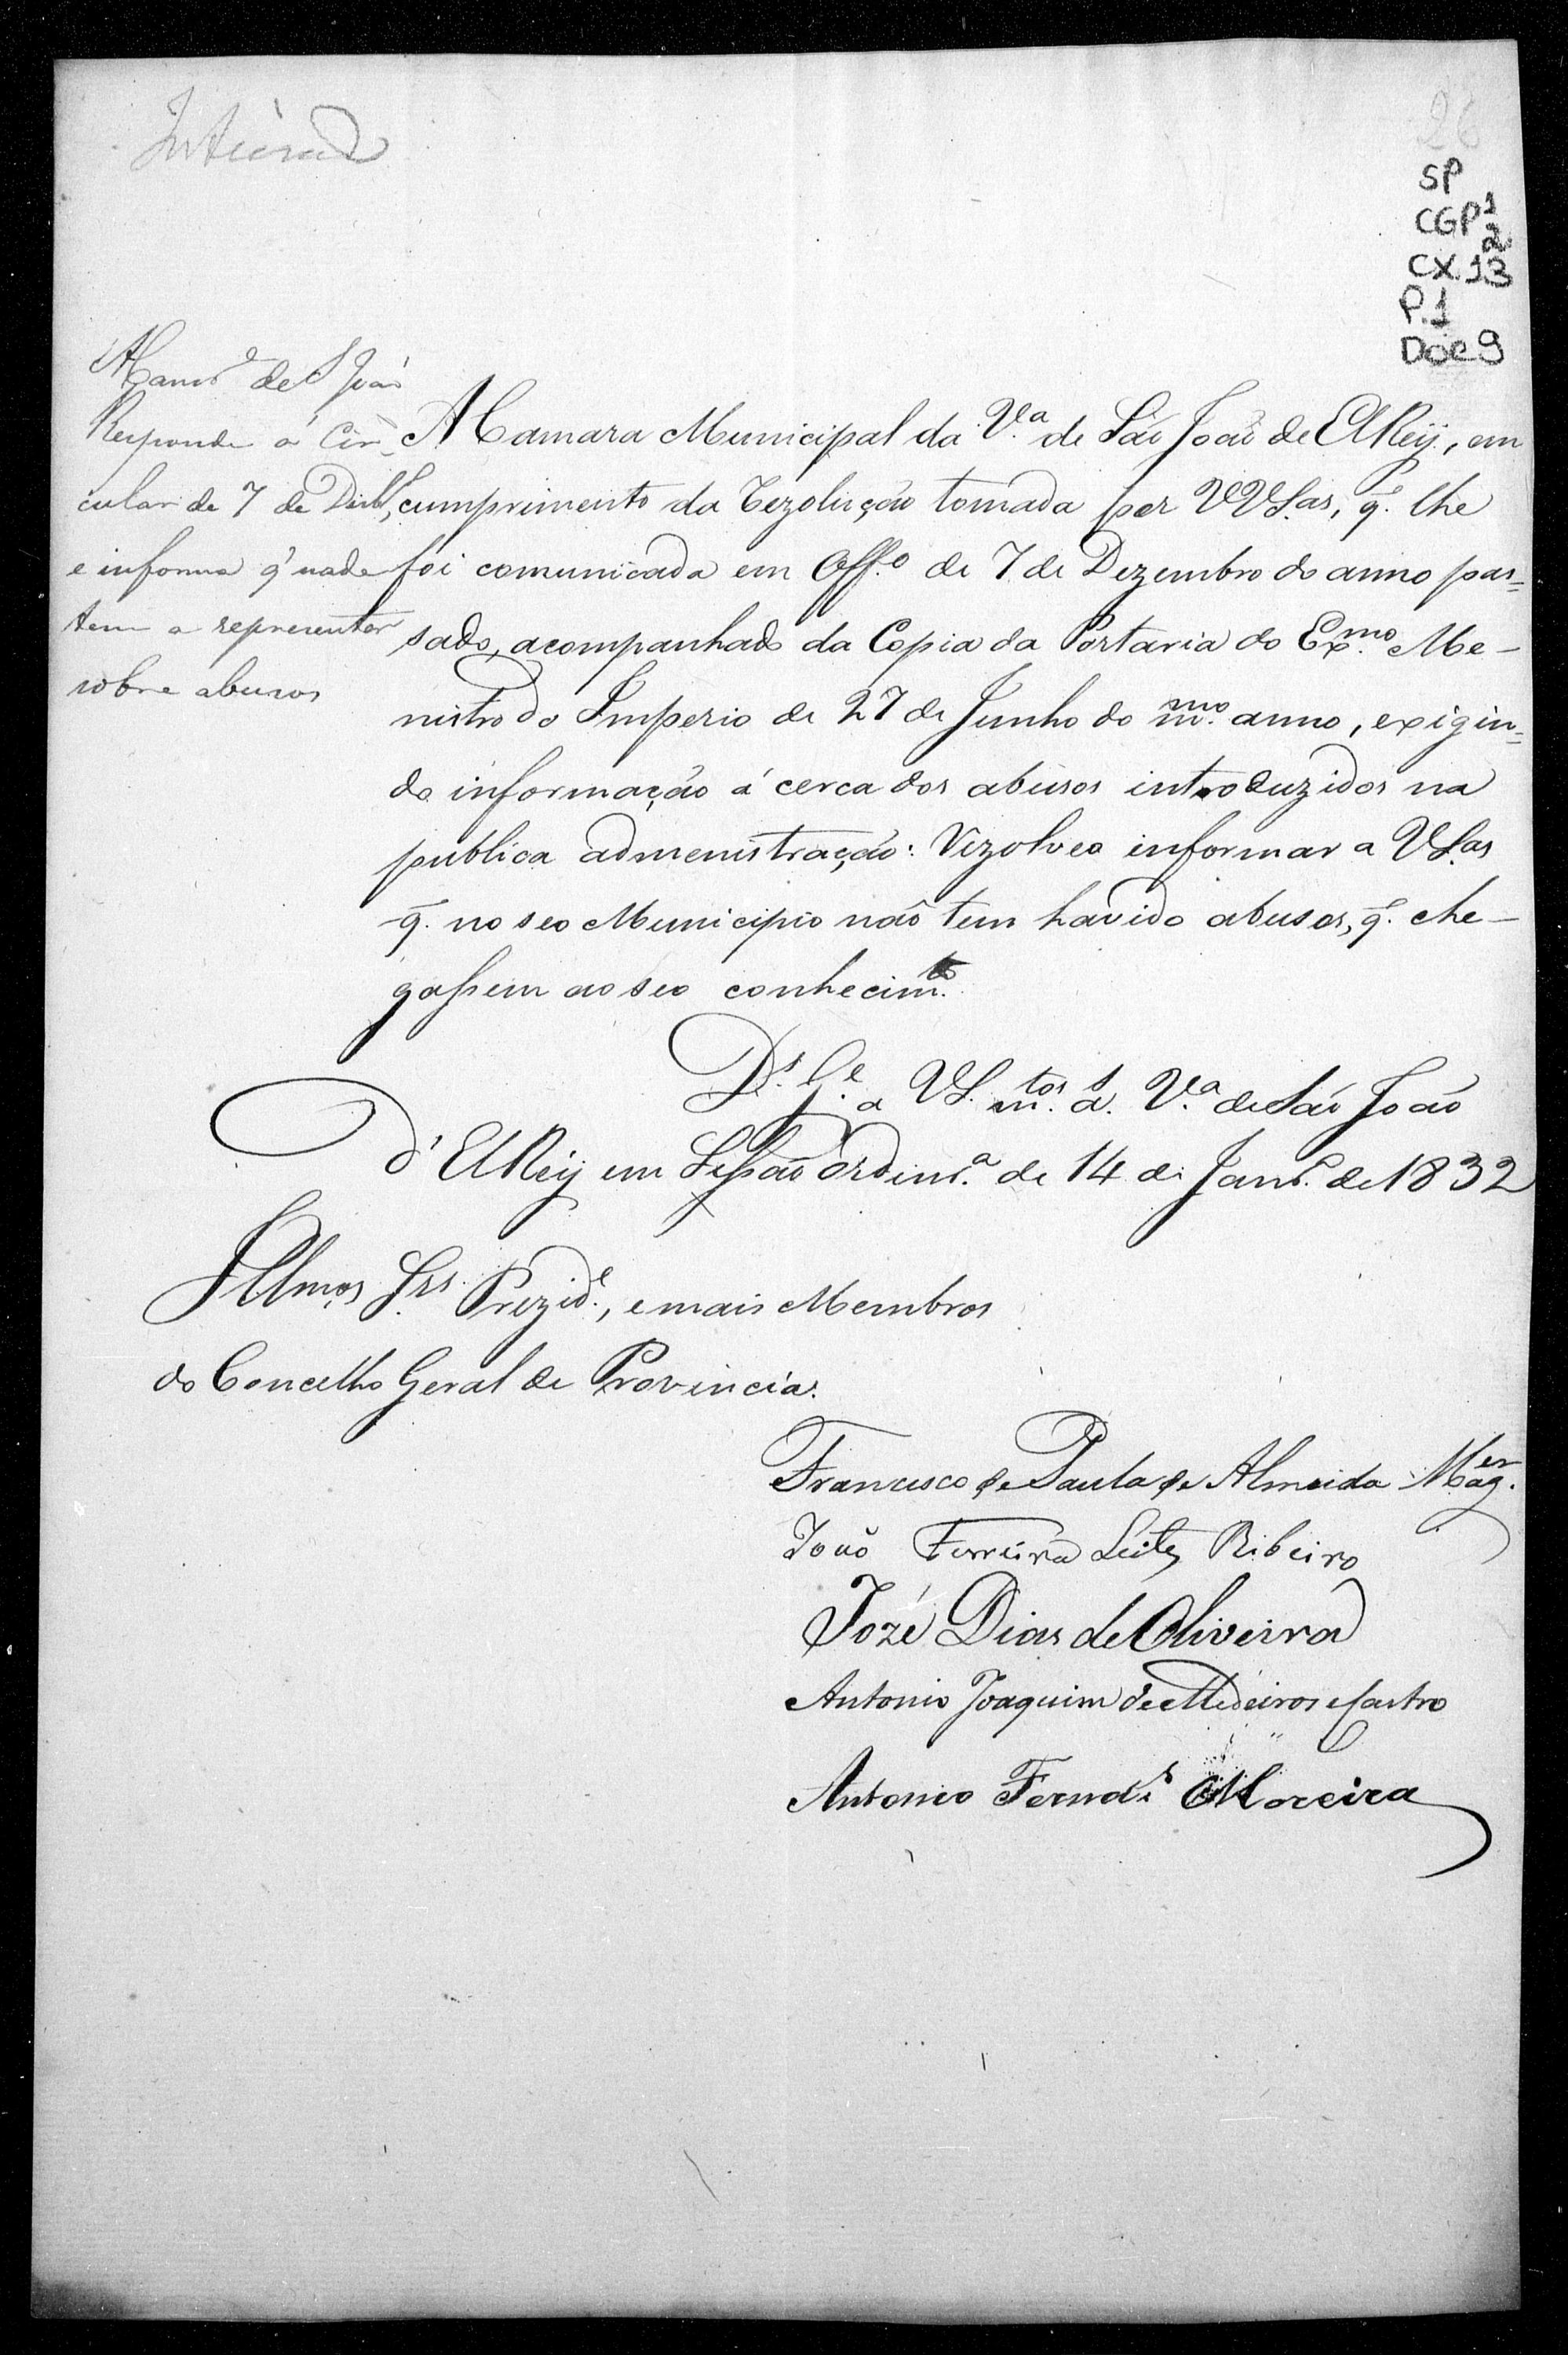 Inteirad
26
SP
CGP 1
2
CX.13
P.1
Doc 9
A Camr.ª de S João
Responde a Cir-
cular de 7 de Dezbr.º,
e informa q' nada
tem a representar
sobre abusos
A Camara Municipal da V.ª de São João de ElRey, em
cumprimento da Rezolução tomada por VVS.as, q. lhe
foi comunicada em Off.º de 7 de Dezembro do anno pas=
sado, acompanhado da Copia da Portaria do Ex.mo Me-
nistro do Imperio de 27 de Junho do m.mo anno, exigin=
do informação á cerca dos abusos introduzidos na
publica admenistração: Rezolveo informar a VS.as
q. no seo Municipio não tem havido abusos, q. che-
gassem ao seo conhecim.to
D.s G.e a VS. m.tos a.s V.ª de São João
d'ElRey em Sessão ordinr.ª de 14 de Janr.º de 1832
Illmos Srs. Prezid.e, e mais Membros
do Concelho Geral de Provincia.
Francisco de Paula de Almeida Mag.en
João Ferreira Leite Ribeiro
Jozé Dias de Oliveira
Antonio Joaquim de Medeiros e Castro
Antonio Fernd.s Moreira